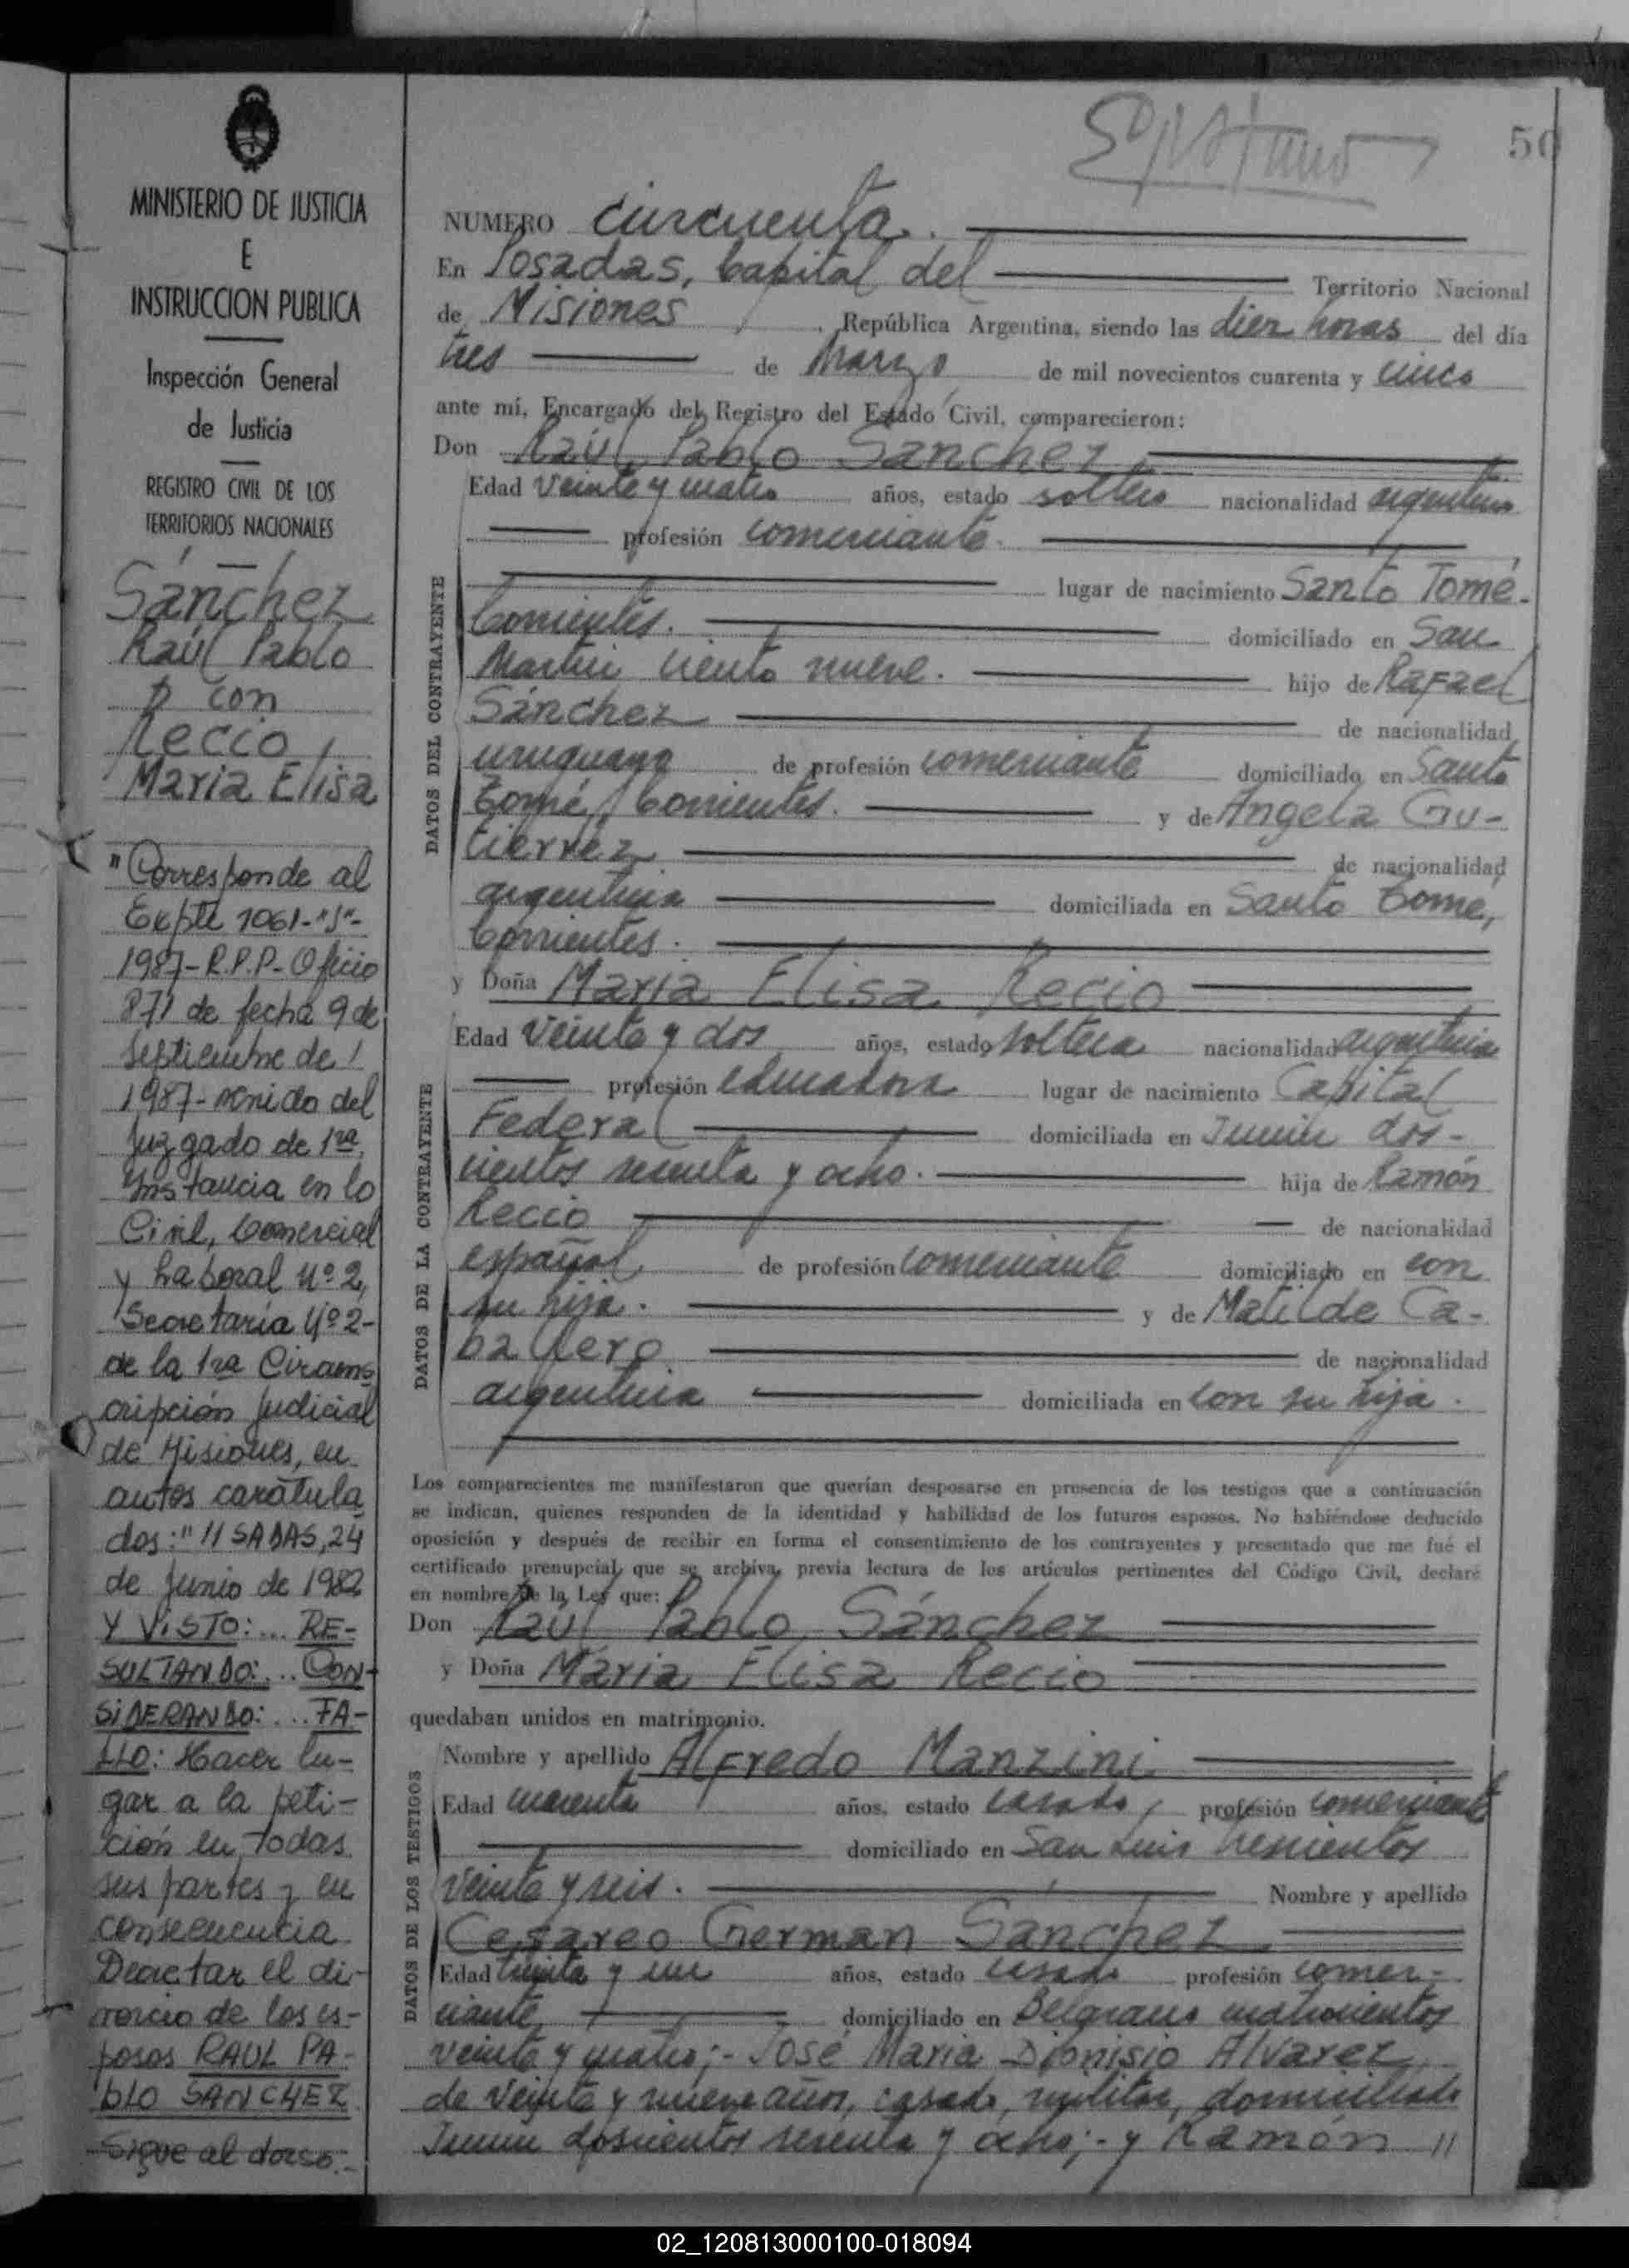 50
MINISTERIO DE JUSTICIA
E
INSTRUCCION PUBLICA
Inspección General
de Justicia
REGISTRO CIVIL DE LOS
TERRITORIOS NACIONALES
Sánchez
Raúl Pablo
con
Recio,
Maria Elisa
"Corresponde al
Expte 1061-"S"-
1987-R.P.P.-Oficio
871 de fecha 9 de
septiembre de
1987- venido del
Juzgado de 1ra
Instancia en lo
Civil, Comercial
y Laboral Nº 2,
Secretaría Nº 2-
de la 1ra Circuns
cripción Judicial
de Misiones, en
autos caratula
dos: "//SADAS, 24
de Junio de 1982
Y VISTO:... RE-
SULTANDO:... CON-
SIDERANDO:... FA-
LLO: Hacer lu-
gar a la peti-
ción en todas
sus partes y en
consecuencia
Decretar el di-
vorcio de los es-
posos RAUL PA-
BLO SANCHEZ
Sigue al dorso.-
NUMERO cincuenta.
En Posadas, Capital del Territorio Nacional
de Misiones, República Argentina, siendo las diez horas del día
tres de Marzo de mil novecientos cuarenta y cinco
ante mí, Encargado del Registro del Estado Civil, comparecieron:
Don Raúl Pablo Sánchez
DATOS DEL CONTRAYENTE
Edad veinte y cuatro años, estado soltero nacionalidad argentino
profesión comerciante.
lugar de nacimiento Santo Tomé.
Corrientes. domiciliado en San
Martin ciento nueve. hijo de Rafael
Sánchez de nacionalidad
uruguayo de profesión comerciante domiciliado en Santo
Tomé, Corrientes. y de Angela Gu-
tierrez de nacionalidad
argentina domiciliada en Santo Tomé,
Corrientes.
y Doña Maria Elisa Recio
DATOS DE LA CONTRAYENTE
Edad veinte y dos años, estado soltera nacionalidad argentina
profesión educadora lugar de nacimiento Capital
Federal domiciliada en Junin dos-
cientos sesenta y ocho. hija de Ramón
Recio de nacionalidad
español de profesión comerciante domiciliado en con
su hija. y de Matilde Ca-
ballero de nacionalidad
argentina domiciliada en con su hija.
Los comparecientes me manifestaron que querían desposarse en presencia de los testigos que a continuación
se indican, quienes responden de la identidad y habilidad de los futuros esposos. No habiéndose deducido
oposición y después de recibir en forma el consentimiento de los contrayentes y presentado que me fué el
certificado prenupcial, que se archiva, previa lectura de los artículos pertinentes del Código Civil, declaré
en nombre de la Ley que:
Don Raúl Pablo Sánchez
y Doña Maria Elisa Recio
quedaban unidos en matrimonio.
DATOS DE LOS TESTIGOS
Nombre y apellido Alfredo Manzini
Edad cuarenta años, estado casado, profesión comerciante
domiciliado en San Luis trescientos
veinte y seis. Nombre y apellido
Cesareo German Sanchez
Edad treinta y un años, estado casado profesión comer-
ciante, domiciliado en Belgrano cuatrocientos
veinte y cuatro;- José Maria Dionisio Alvarez
de veinte y nueve años, casado, militar, domiciliado
Junin doscientos sesenta y ocho;- y Ramón //
02_120813000100-018094